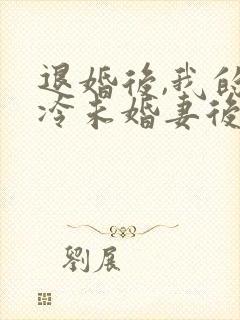 退婚後,我的
冷未婚妻後
劉展